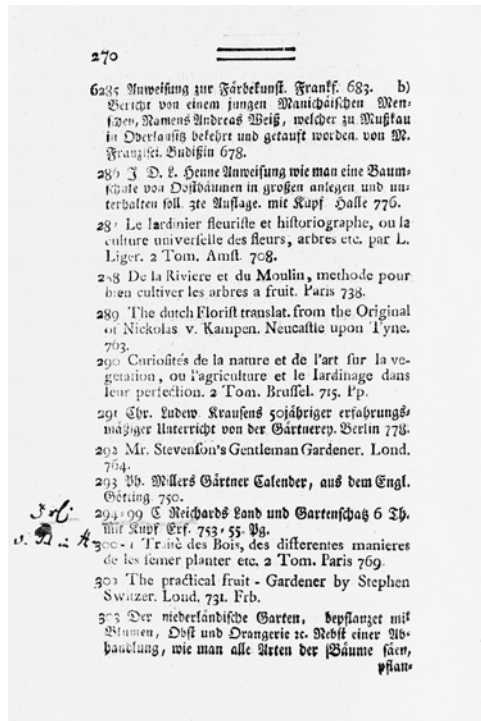 270
6285 Anweisung zur Färbekunst. Frankf. 683. b)
Bericht von einem jungen Manichäischen Men-
schen, Namens Andreas Weiß, welcher zu Mußkau
in Oberlausitz bekehrt und getauft worden. von M.
Franzisci. Budißin 678.
286 J. D. L. Henne Anweisung wie man eine Baum-
schule von Obstbäumen in großen anlegen und un-
terhalten soll. 3te Auflage. mit Kupf Halle 776.
287 Le Iardinier fleuriste et historiographe, ou la
culture universelle des fleurs, arbres etc. par L.
Liger. 2 Tom. Amst. 708.
288 De la Riviere et du Moulin, methode pour
bien cultiver les arbres a fruit. Paris 738.
289 The dutch Florist translat. from the Original
of Nickolas v. Kampen. Neucastle upon Tyne.
763.
290 Curiosités de la nature et de l'art sur la ve-
getation, ou l'agriculture et le Iardinage dans
leur perfection. 2 Tom. Brussel. 715. Pp.
291 Chr. Ludew. Krausens 50jähriger erfahrungs-
mäßiger Unterricht von der Gärtnerey. Berlin 778.
292 Mr. Stevenson's Gentleman Gardener. Lond.
764.
293 Ph. Millers Gärtner Calender, aus dem Engl.
Götting. 750.
294-99 C Reichards Land und Gartenschatz 6 Th.
mit Kupf Erf. 753-55. Pg.
300-1 Traité des Bois, des differentes manieres
de les semer planter etc. 2 Tom. Paris 769.
302 The practical fruit-Gardener by Stephen
Switzer. Lond. 731. Frb.
303 Der niederländische Garten, bepflanzet mit
Blumen, Obst und Orangerie ꝛc. Nebst einer Ab-
handlung, wie man alle Arten der Bäume säen,
pflan-